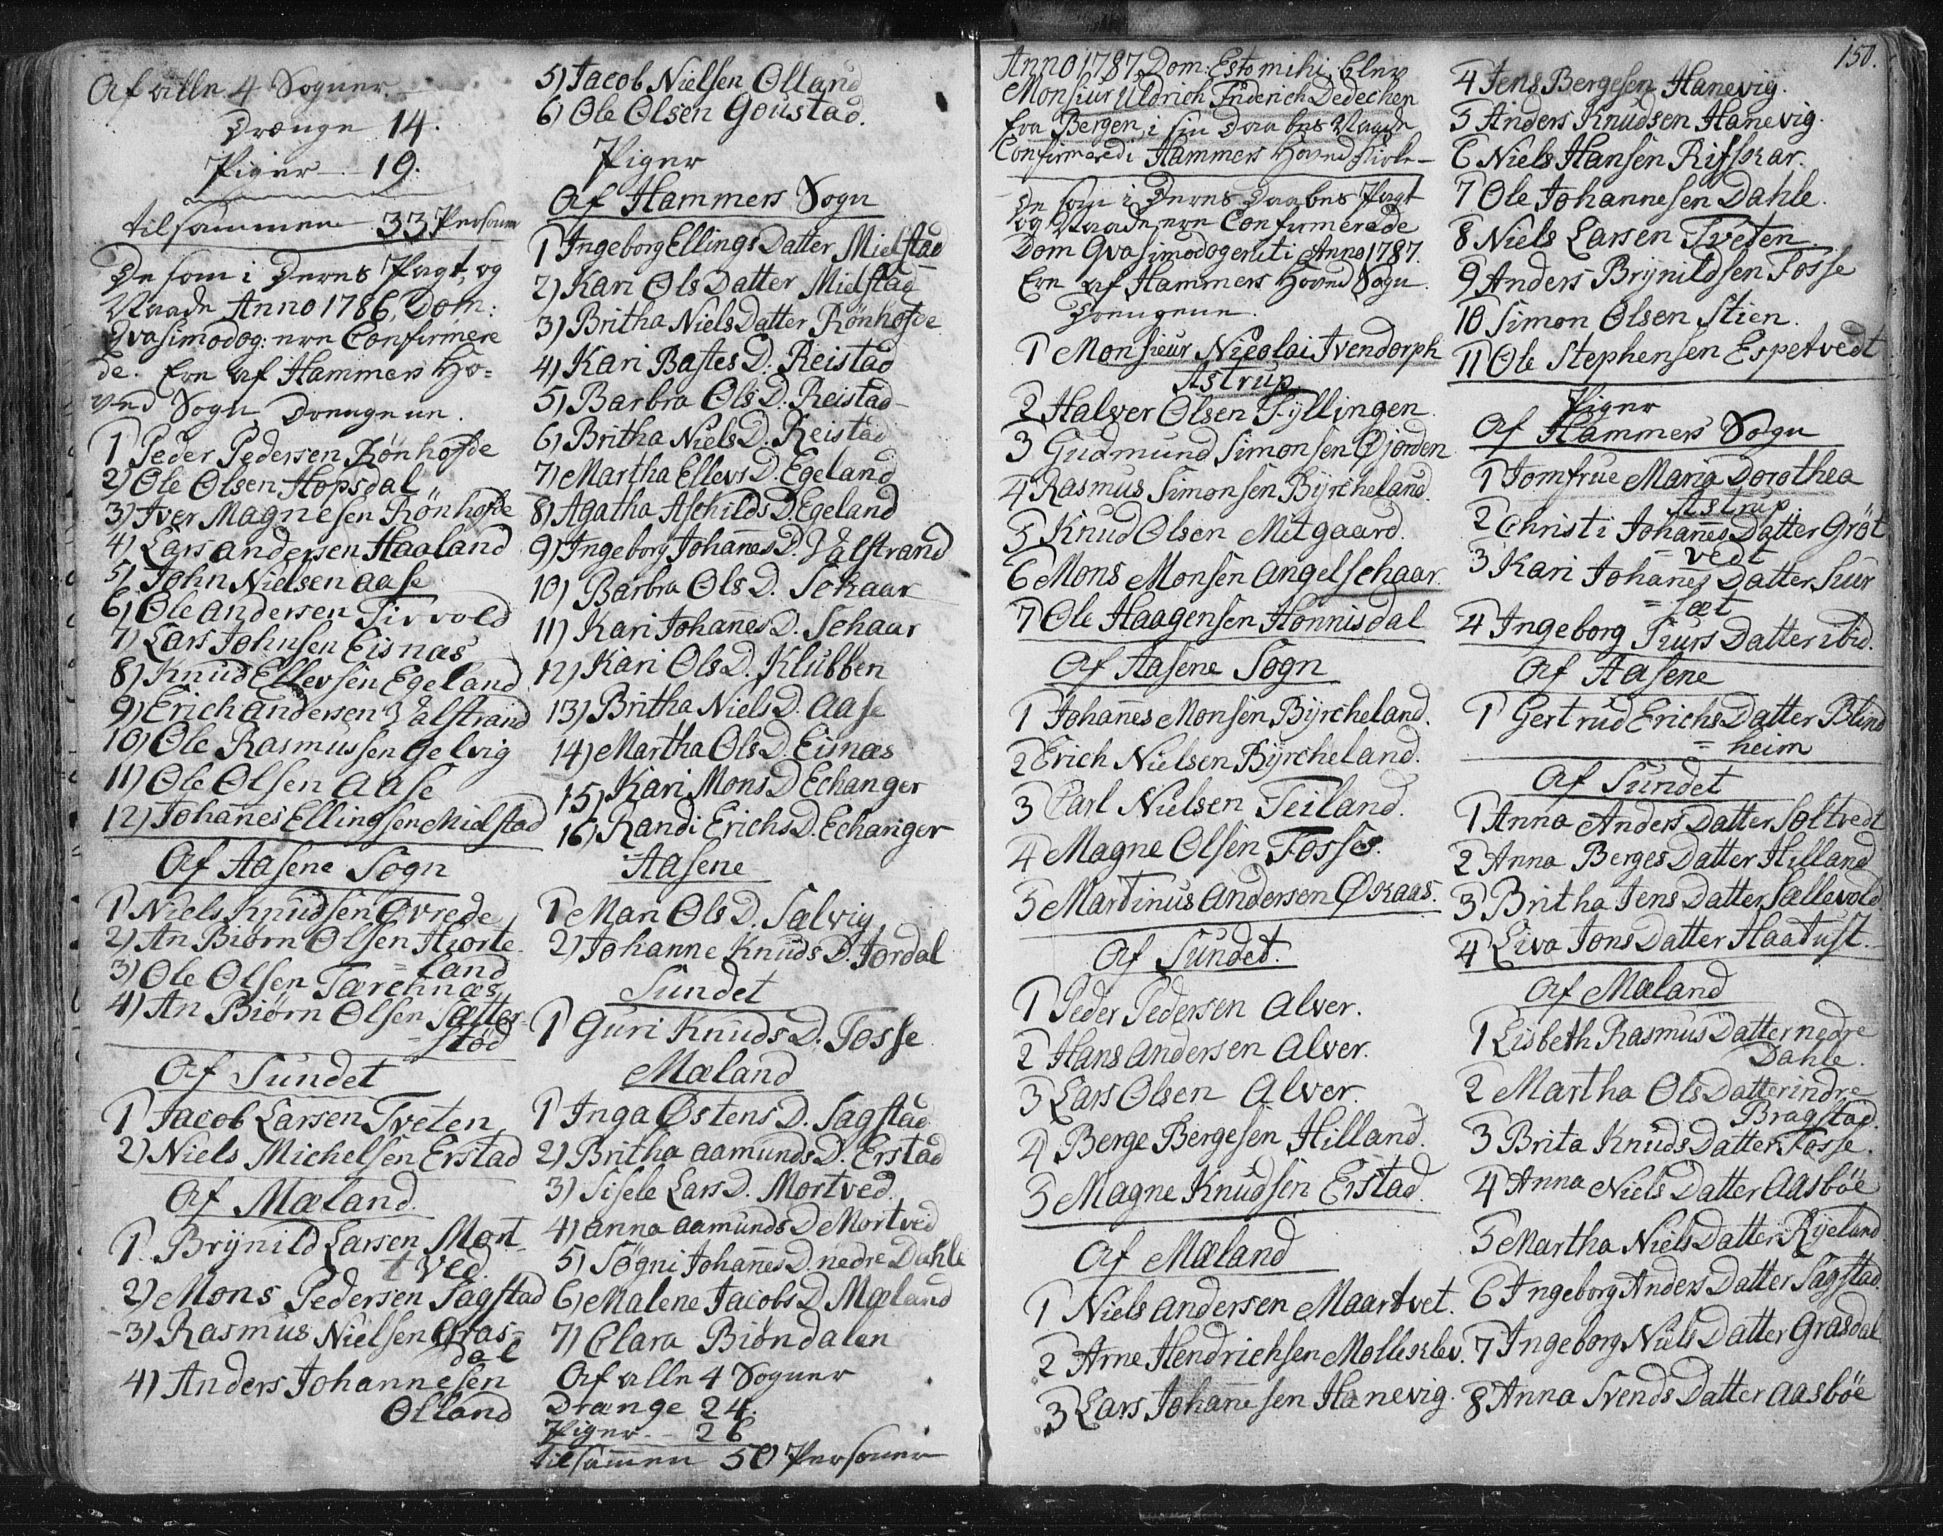 Af alle 4 Sogner
Drænge 14.
Piger — 19.
tilsammen 33 Personer
De som i Deres Pagt, og
Naade Anno 1786, Dom:
Qvasimodog: ere Confirmere
de. Ere af Hammers Ho=
ved Sogn Drengene.
1 Peder Pedersen Rönhofde
2) Ole Olsen Hopsdal
3) Iver Magnesen Rönhofde
4) Lars Andersen Haaland
5) John Nielsen Aase
6) Ole Andersen Tivvold
7) Lars Johnsen Eisnæs
8) Knud Ellevsen Egeland
9) Erich Andersen Valstrand
10) Ole Rasmussen Gelvig
11) Ole Olsen Aase
12) Johanes Ellingsen Mielstad
Af Aasene Sogn
1 Niels Knudsen Øvrede
2) An Biørn Olsen Hiorte
= land
3) Ole Olsen Tærchnæs
4) An Biørn Olsen Sætter
= stöd
Af Sundet
1 Jacob Larsen Tveten
2) Niels Michelsen Erstad
Af Mæland
1. Brÿnild Larsen Mort
tved
2) Mons Pedersen Sagstad
3) Rasmus Nielsen Gras=
dal
4) Anders Johannesen
Ølland
5) Jacob Nielsen Ølland
6) Ole Olsen Goustad.
Piger
Af Hammers Sogn
1 Ingeborg Ellings Datter Mielstad
2) Kari Ols Datter Mielstad
3) Britha Niels Datter Rönhofde
4) Kari Bastes D: Reistad
5) Barbra Ols D: Reistad
6) Britha Niels D: Reistad
7) Martha Ellevs D. Egeland
8) Agatha Aschilds D Egeland
9) Ingeborg Johanes D. Valstrand
10) Barbra Ols D. Schaar
11) Kari Johanes D. Schaar
12) Kari Ols D. Klubben
13) Britha Niels D. Aase
14) Martha Ols D. Eisnæs
15) Kari Mons D Echanger
16) Randi Erichs D. Echanger
Aasene
1 Mari Ols D. Sælvig
2) Johanne Knuds D. Jordal
Sundet
1 Guri Knuds D. Fosse
Mæland
1 Inga Østens D. Sagstad
2) Britha Aamunds D. Erstad
3) Sisele Lars D. Mortved
4) Anna Aamunds D Mortved
5) Søgni Johanes D. nedre Dahle
6) Malene Jacobs D Mæland
7) Clara Biøndalen
Af alle 4 Sogner
Drænge 24.
Piger — 26
tilsammen 50 Personer
150.
Anno 1787, Dom: Esto mihi, blev
Monsiur Uldrich Friderich Dedechen
fra Bergen, i sin Daabes Naade
Confirmered i Hammers Hoved Kirke
De som i Deres Daabes Pagt
og Naade ere Confirmerede
Dom Qvasimodogeniti Anno 1787.
Ere af Hammers Hoved Sogn
Drengene.
1 Monsieur Nicolai Tvendorph
Astrup
2 Halver Olsen Fÿllingen
3 Gudmund Simonsen Øjorden
4 Rasmus Simonsen Bÿrcheland.
5 Knud Olsen Mitgaard.
6 Mons Monsen Angelschaar.
7 Ole Haagensen Honnisdal
Af Aasene Sogn
1 Johanes Monsen Bÿrcheland.
2 Erich Nielsen Bÿrcheland.
3 Carl Nielsen Teiland.
4 Magne Olsen Fosse.
5 Martinus Andersen Økaas.
Af Sundet.
1 Peder Pedersen Alver.
2 Hans Andersen Alver.
3 Lars Olsen Alver.
4 Berge Bergesen Hilland.
5 Magne Knudsen Erstad.
Af Mæland
1 Niels Andersen Maartvet.
2 Arne Hendrichsen Molleklev.
3 Lars Johanesen Hanevig.
4 Jens Bergesen Hanevig.
5 Anders Knudsen Hanevig.
6 Niels Hansen Rifskar.
7 Ole Johannesen Dahle.
8 Niels Larsen Tveten
9 Anders Brÿnildsen Fosse
10 Simon Olsen Stien.
11 Ole Stephensen Espetvedt
Piger
Af Hammers Sogn
1 Jomfrue Maria Dorothea
Astrup
2 Christi Johanes Datter Gröt
= vedt
3 Kari Johanes Datter Suur
= sæt
4 Ingeborg Siurs Datter ibid.
Af Aasene
1 Gertrud Erichs Datter Blind
= heim
Af Sundet
1 Anna Anders Datter Soltvedt
2 Anna Berges Datter Hilland
3 Britha Jens Datter Sællevold
4 Liva Jons Datter Haatust.
Af Mæland
1 Lisbeth Rasmus Datter nedre
Dahle.
2 Martha Ols Datter indre
Bragstad.
3 Brita Knuds Datter Fosse.
4 Anna Niels Datter Aasböe
5 Martha Niels Datter Rÿeland
6 Ingeborg Anders Datter Sagstad.
7 Ingeborg Niels Datter Grasdal
8 Anna Svends Datter Aasböe